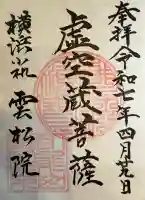 奉拝 令和七年四月廿日
虚空蔵菩薩
横浜 雲松院